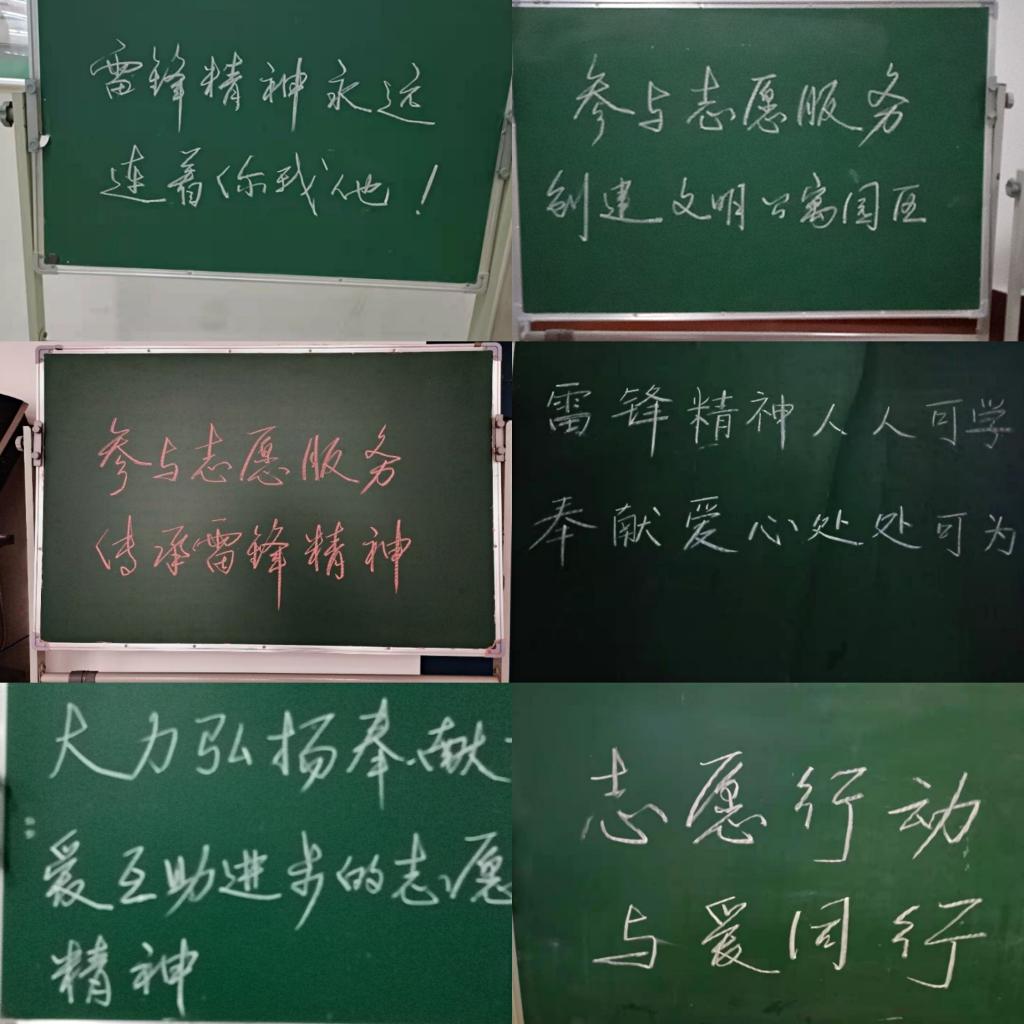 雷锋精神永远
连着你我他！
参与志愿服务
创建文明公寓园区
参与志愿服务
传承雷锋精神
雷锋精神人人可学
奉献爱心处处可为
大力弘扬奉献
爱互助进步的志愿
精神
志愿行动
与爱同行